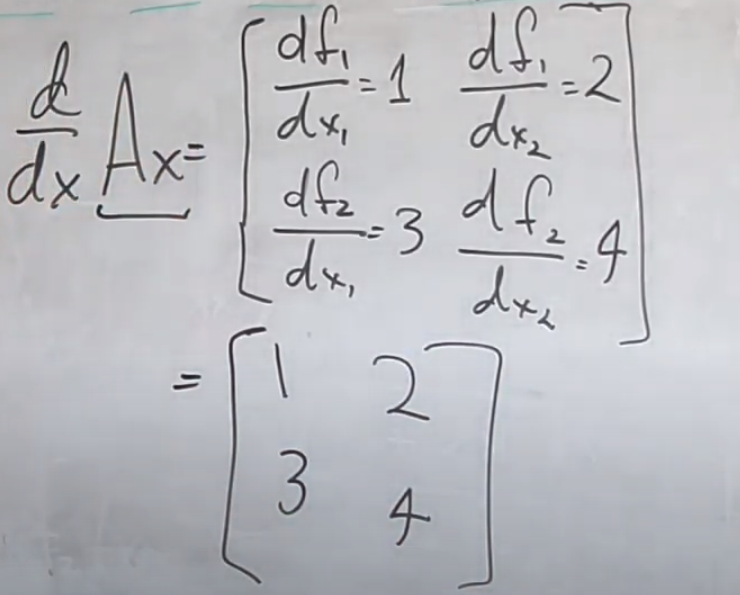 d/dx Ax = [ df₁/dx₁ = 1 df₁/dx₂ = 2
df₂/dx₁ = 3 df₂/dx₂ = 4 ]
= [ 1 2
3 4 ]